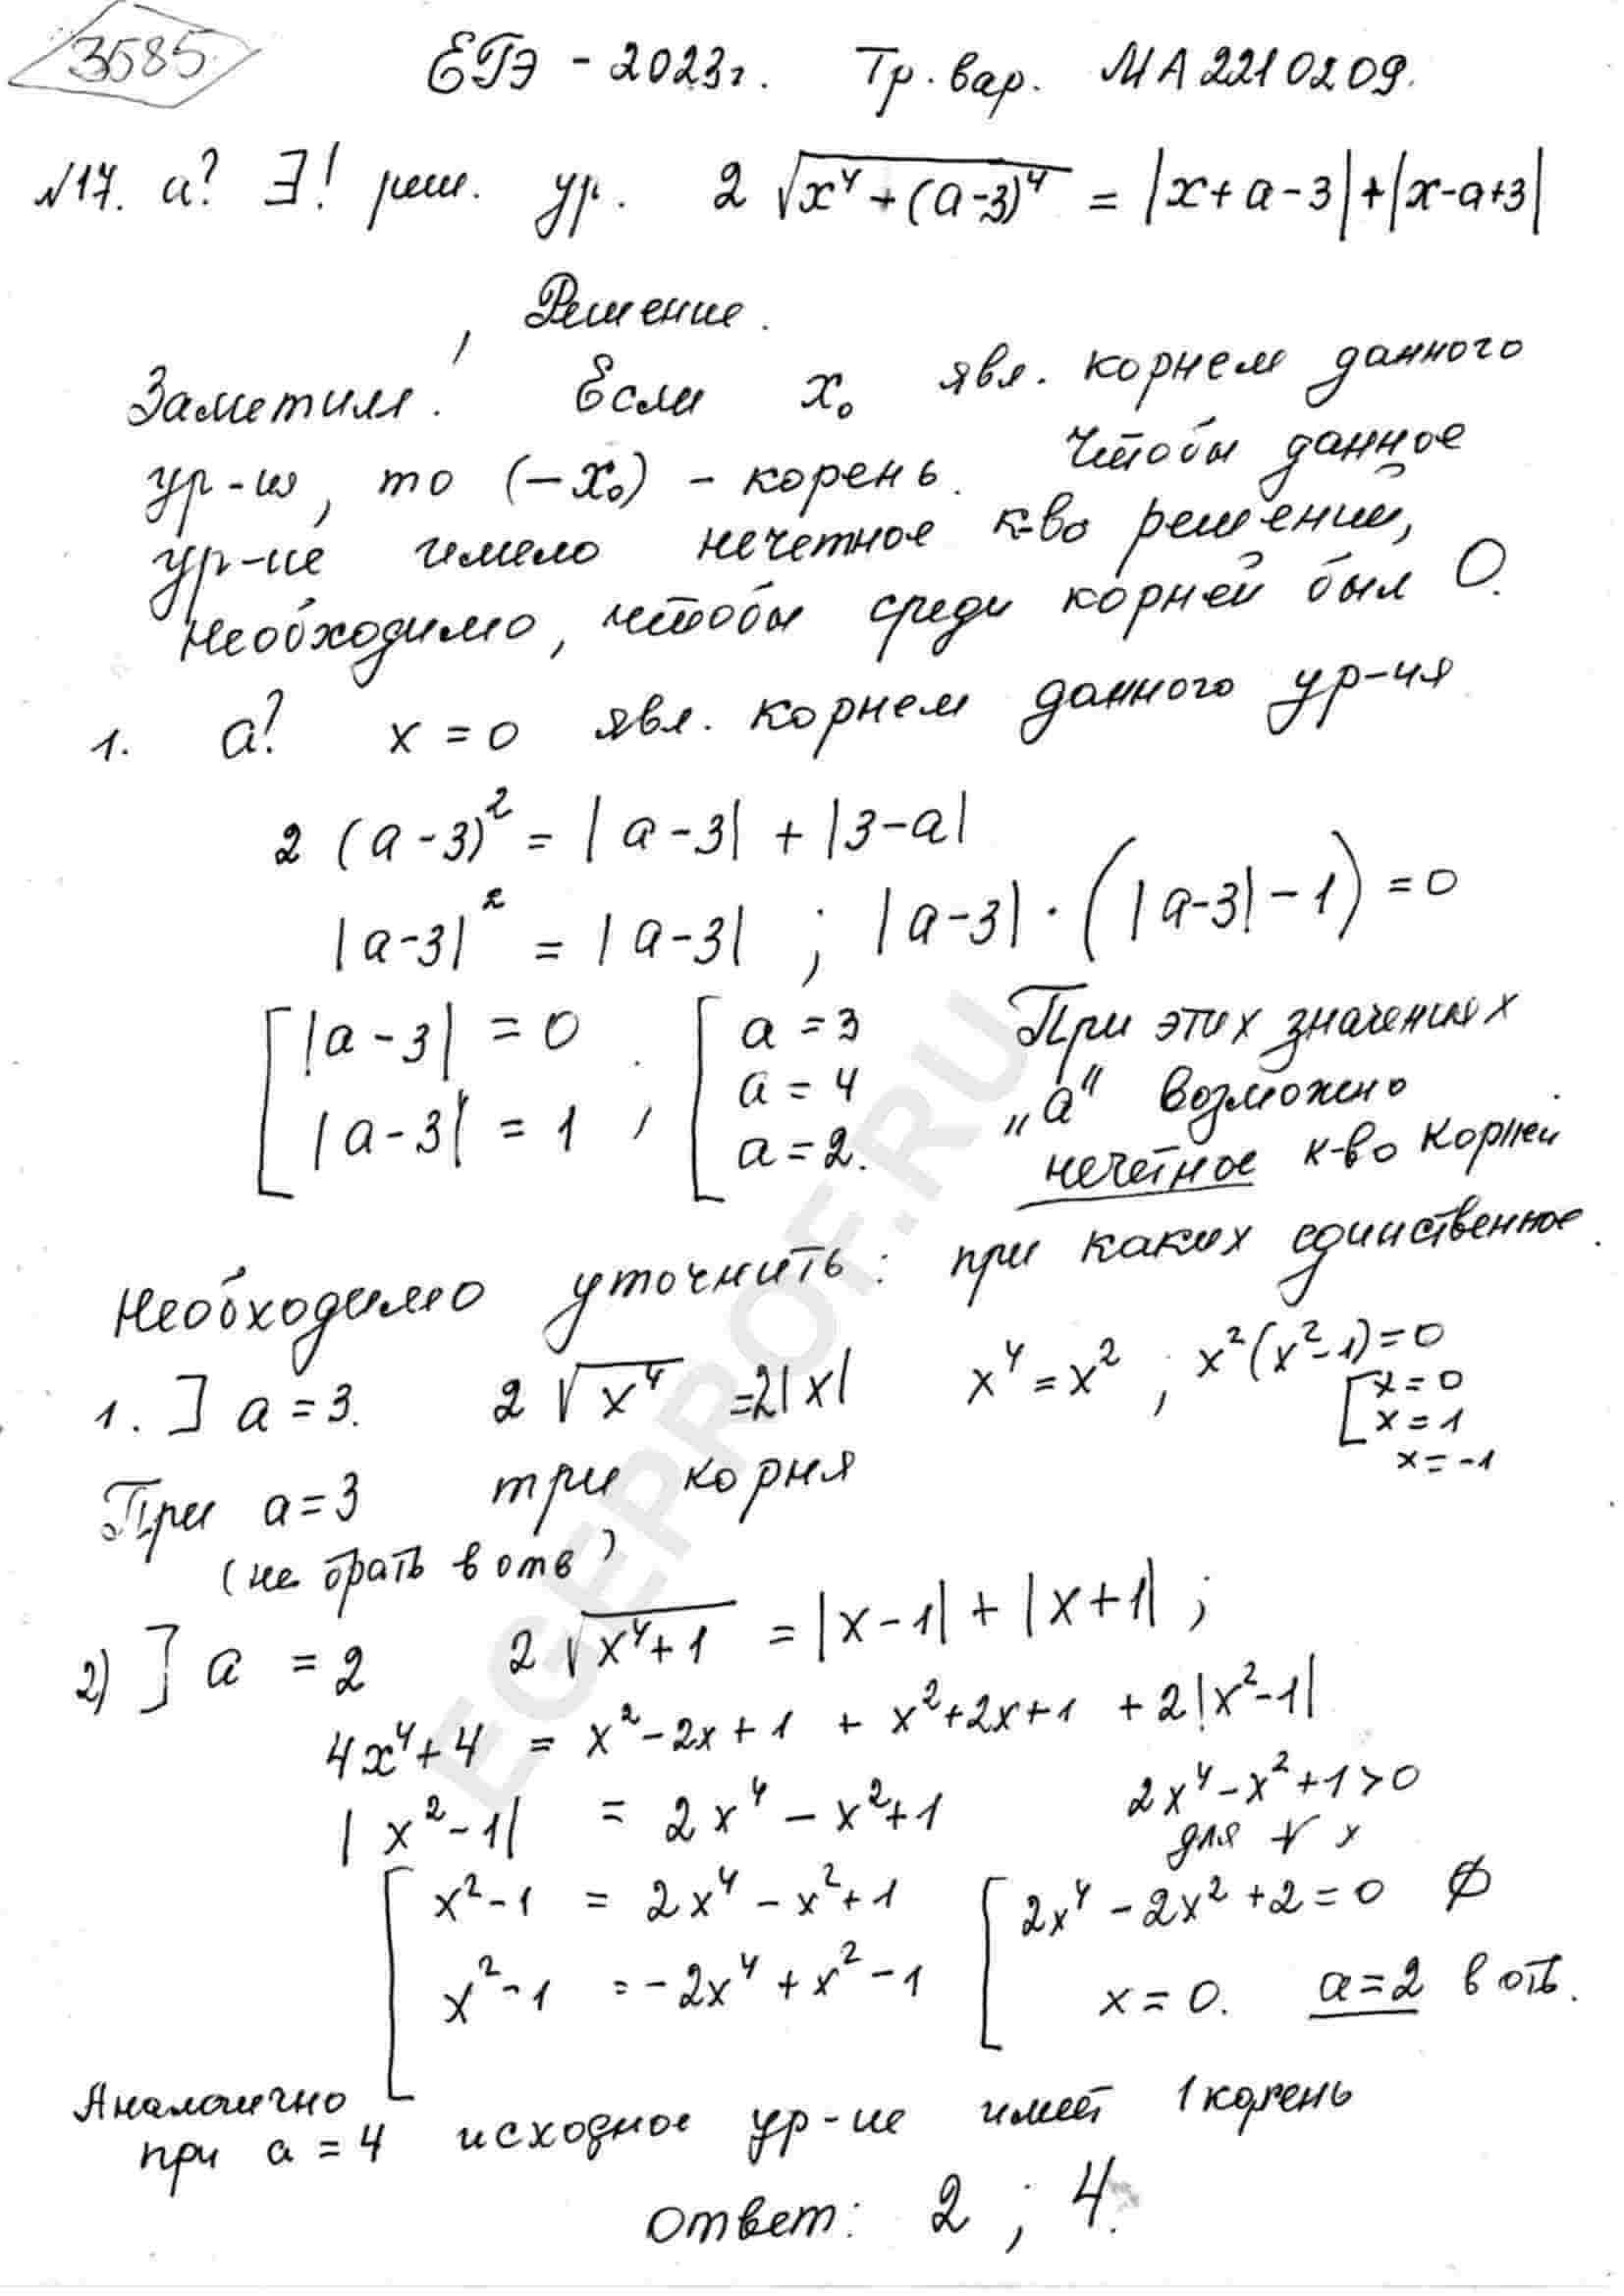 3585
ЕГЭ - 2023г. Тр. вар. МА2210209.
№17. a? ∃! реш. ур. 2√(x⁴+(a-3)⁴) = |x+a-3|+|x-a+3|
Решение.
Заметим! Если x₀ явл. корнем данного
ур-ия, то (-x₀) - корень. Чтобы данное
ур-ие имело нечетное к-во решений,
необходимо, чтобы среди корней был 0.
1. a? x = 0 явл. корнем данного ур-ия
2(a-3)² = |a-3| + |3-a|
|a-3|² = |a-3| ; |a-3|·(|a-3|-1) = 0
[ |a-3| = 0 ; [ a = 3 При этих значениях
|a-3| = 1 a = 4 „a" возможно
a = 2. нечетное к-во корней
Необходимо уточнить: при каких единственное.
1. ] a = 3. 2√x⁴ = 2|x| x⁴ = x² ; x²(x²-1) = 0
[ x = 0
x = 1
x = -1
При a = 3 три корня
(не брать в отв)
2) ] a = 2 2√(x⁴+1) = |x-1| + |x+1| ;
4x⁴+4 = x²-2x+1 + x²+2x+1 + 2|x²-1|
|x²-1| = 2x⁴ - x²+1 2x⁴-x²+1>0
для ∀ x
[ x²-1 = 2x⁴ - x²+1 [ 2x⁴ - 2x² + 2 = 0 ∅
x²-1 = -2x⁴ + x² - 1 x = 0. a = 2 в отв.
Аналогично
при a = 4 исходное ур-ие имеет 1 корень
Ответ: 2 ; 4.
EGEPROF.RU